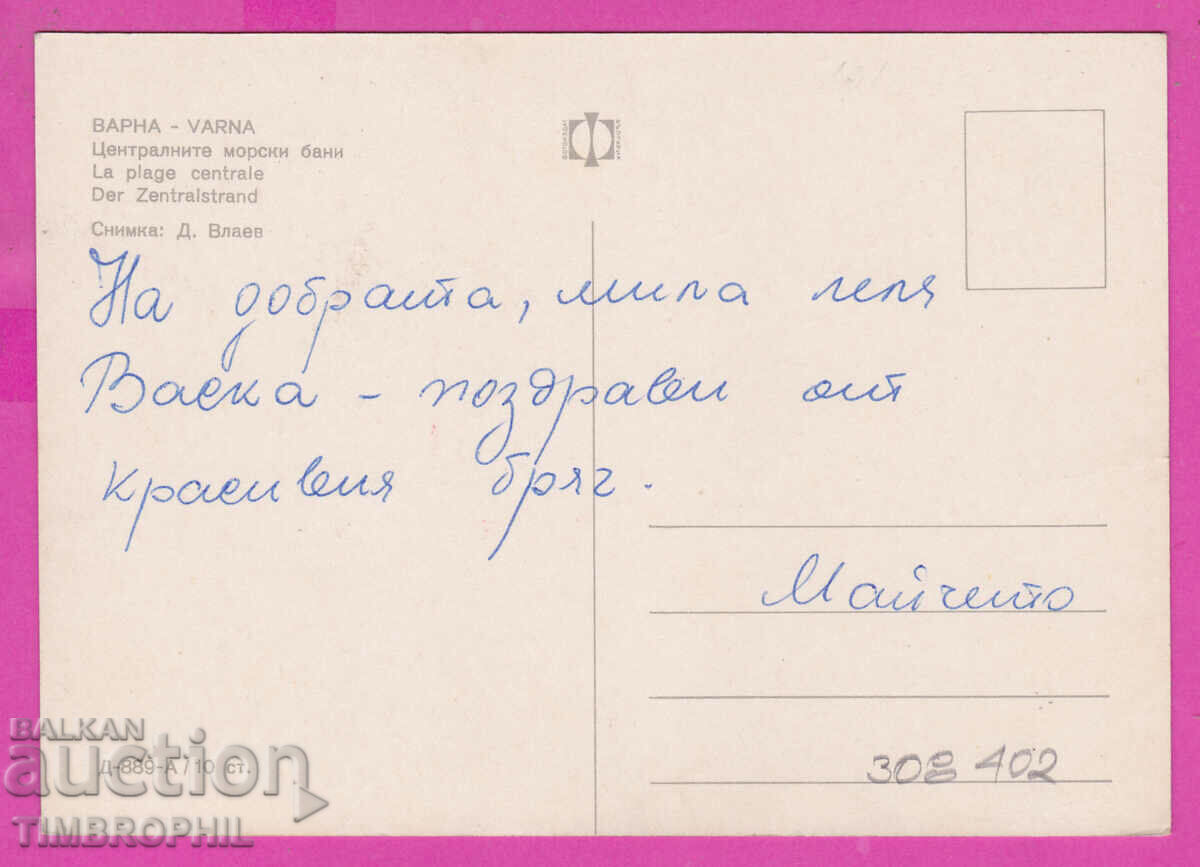 ВАРНА - VARNA
Централните морски бани
La plage centrale
Der Zentralstrand
Снимка: Д. Влаев
На добрата, мила леля
Васка - поздрави от
красивия бряг.
Майчето
308 402
Д-889-А / 10 ст.
BALKAN
auction
TIMBROPHIL